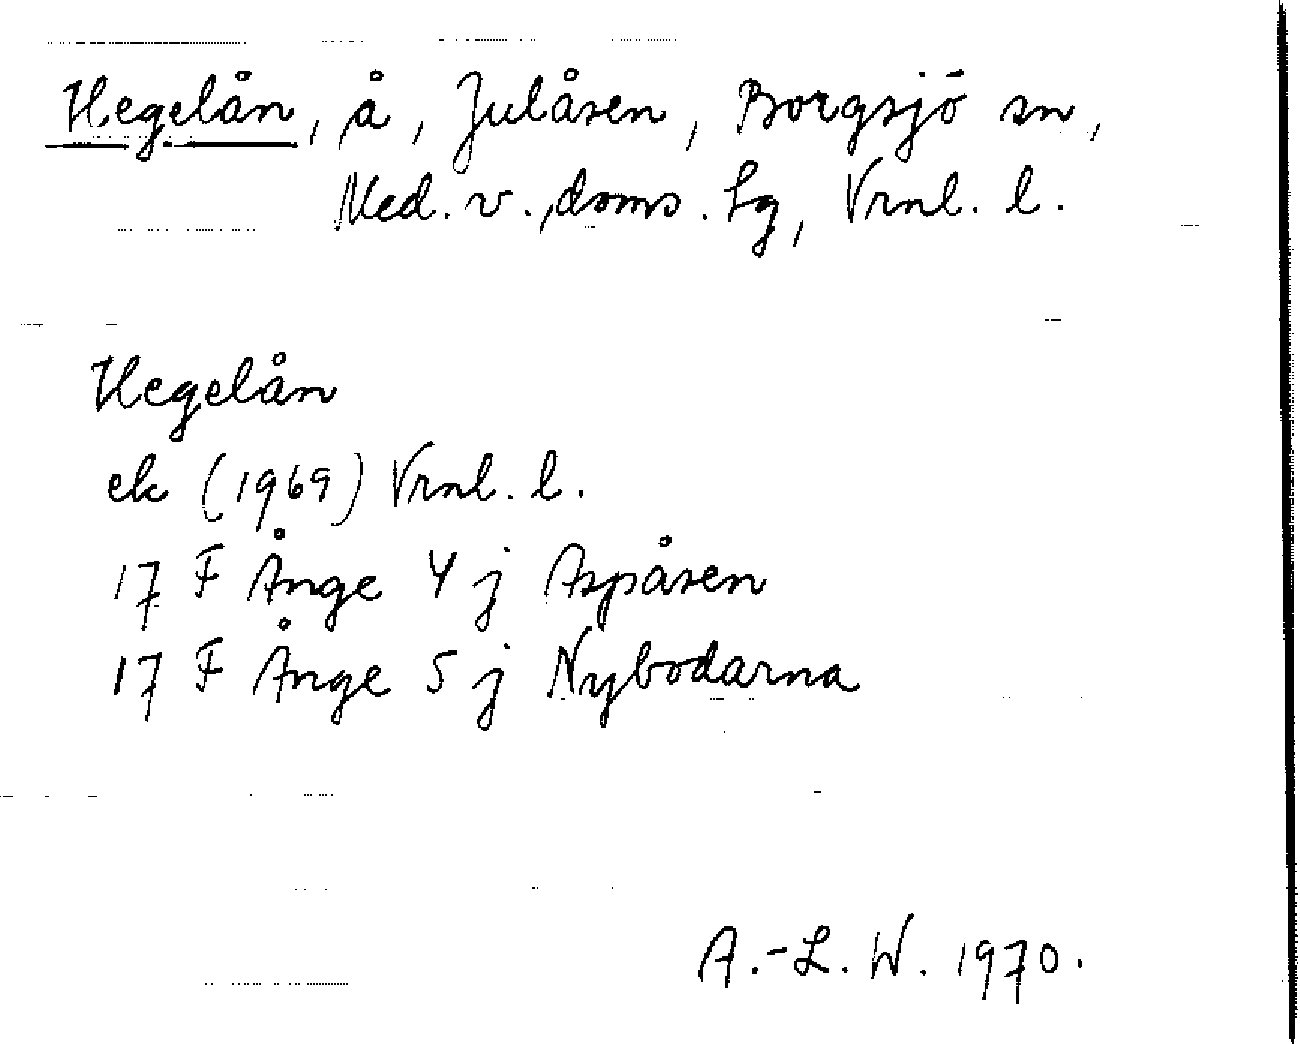 Hegelån, å, Julåsen, Borgsjö sn,
Med. v., doms. hg, Vrnl. l.
Hegelån
ek (1969) Vrnl. l.
17 F Ånge 4 j Aspåsen
17 F Ånge 5 j Nybodarna
A.-L. W. 1970.